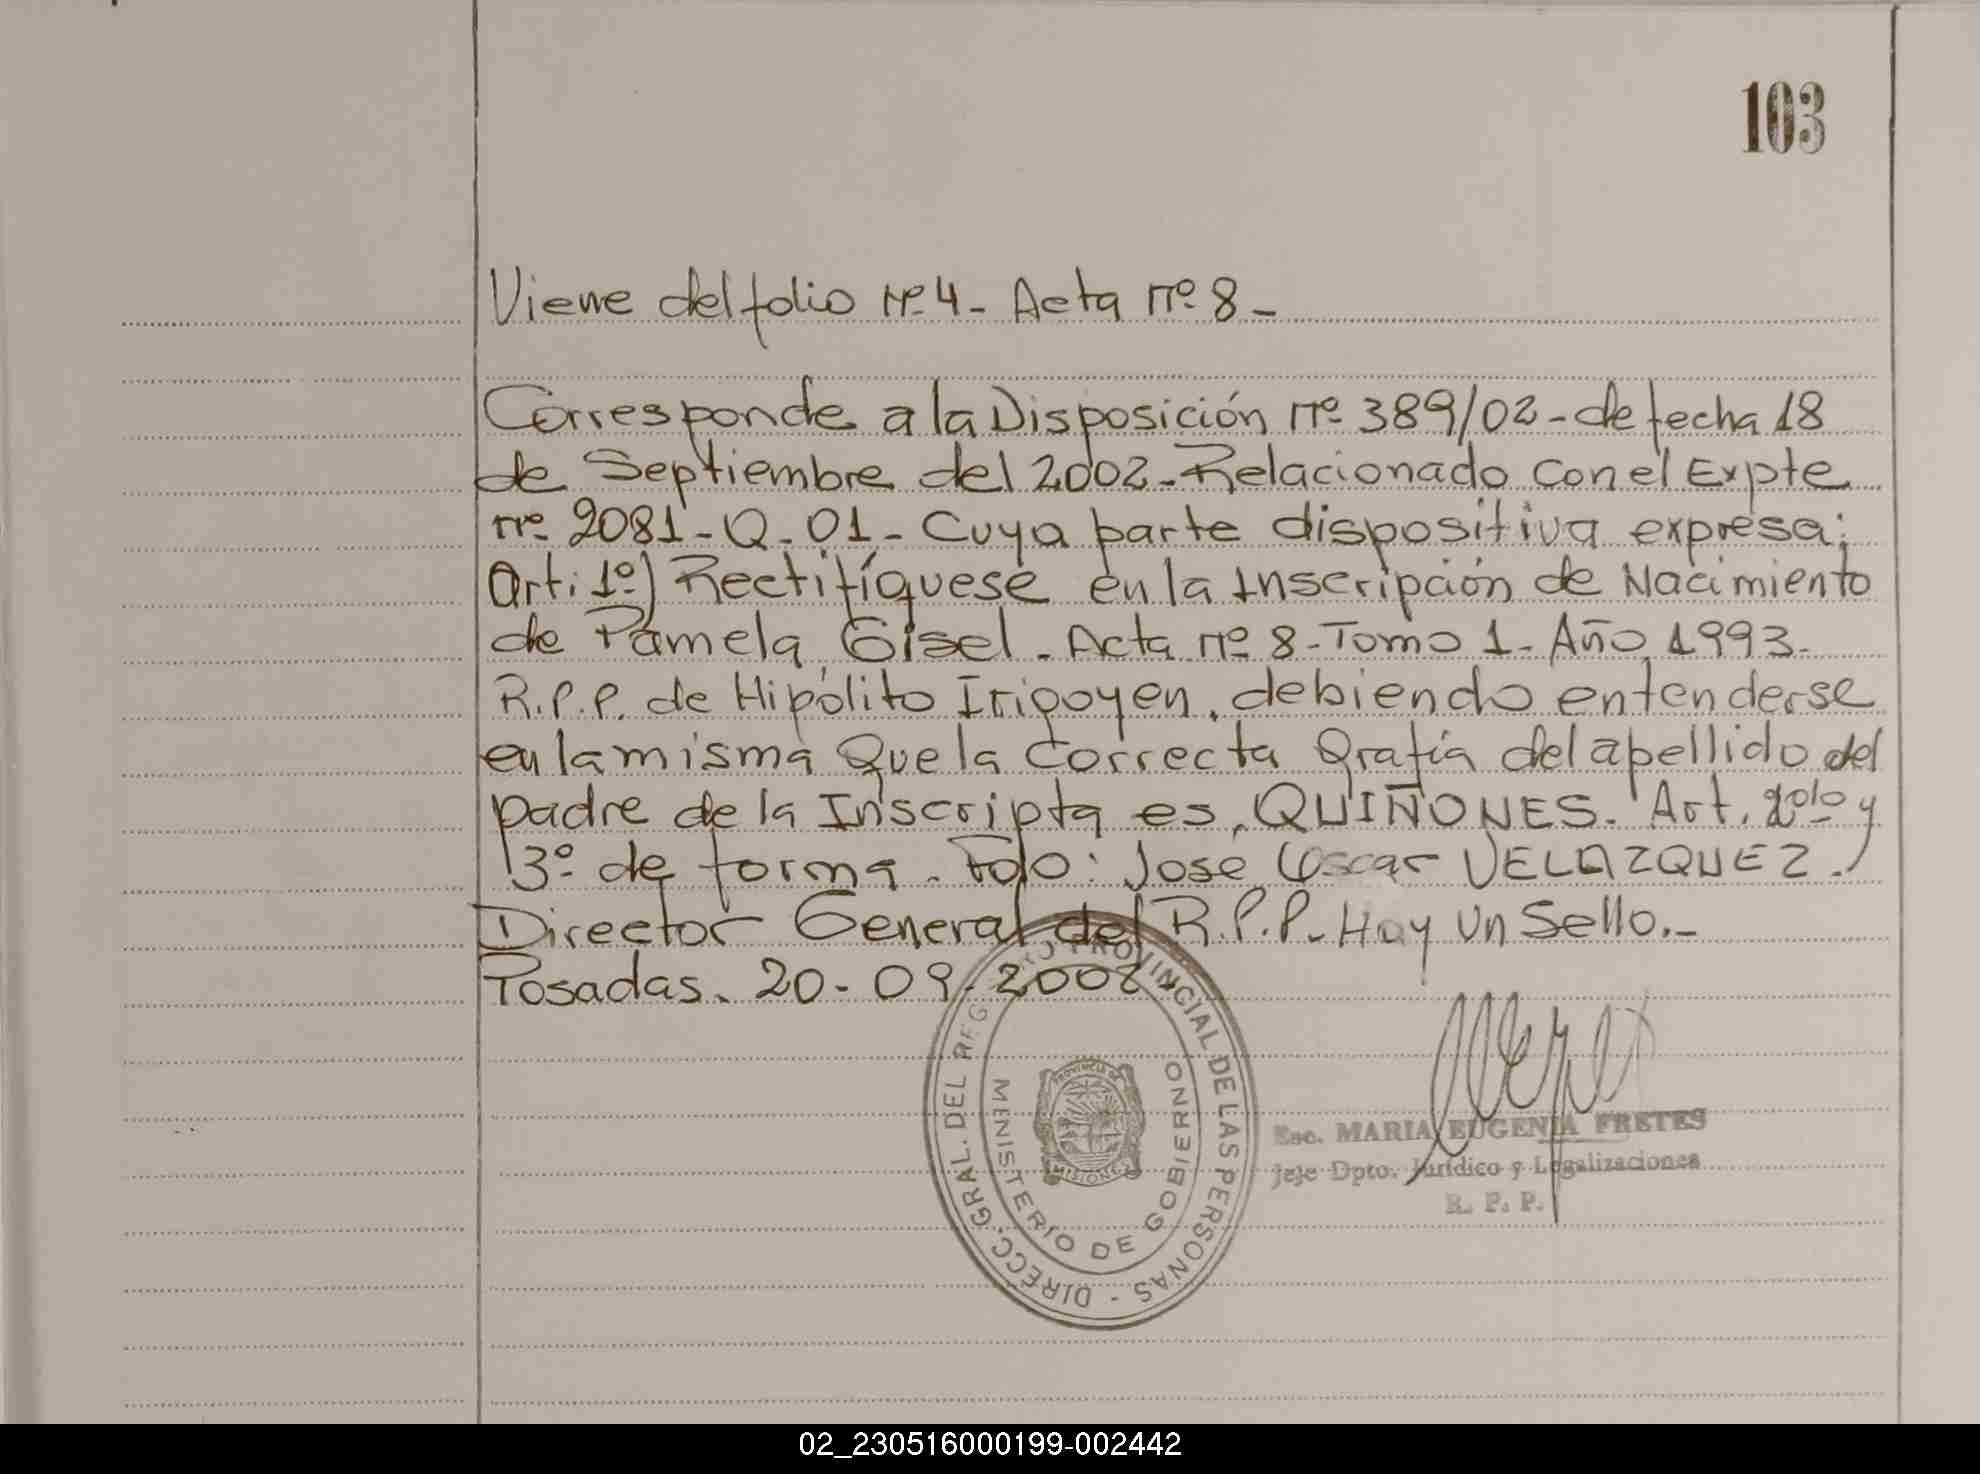 103
Viene del folio nº 4- Acta nº 8-
Corresponde a la Disposición nº 389/02-de fecha 18
de Septiembre del 2002-Relacionado con el Expte
nº 2081-Q-01- Cuya parte dispositiva expresa:
Art: 1º) Rectifíquese en la Inscripción de Nacimiento
de Pamela Gisel- Acta nº 8-Tomo 1- Año 1993-
R.P.P. de Hipólito Irigoyen, debiendo entenderse
en la misma Que la Correcta Grafía del apellido del
padre de la Inscripta es, QUIÑONES. Art. 2º y
3º de forma. Fdo: José Oscar VELAZQUEZ.
Director General del R.P.P. Hay un Sello.-
Posadas. 20-09-2002
DIRECC. GRAL. DEL REGISTRO PROVINCIAL DE LAS PERSONAS -
MENISTERIO DE GOBIERNO
PROVINCIA DE
MISIONES
Esc. MARIA EUGENIA FRETES
Jefe Dpto. Jurídico y Legalizaciones
R. P. P.
02_230516000199-002442